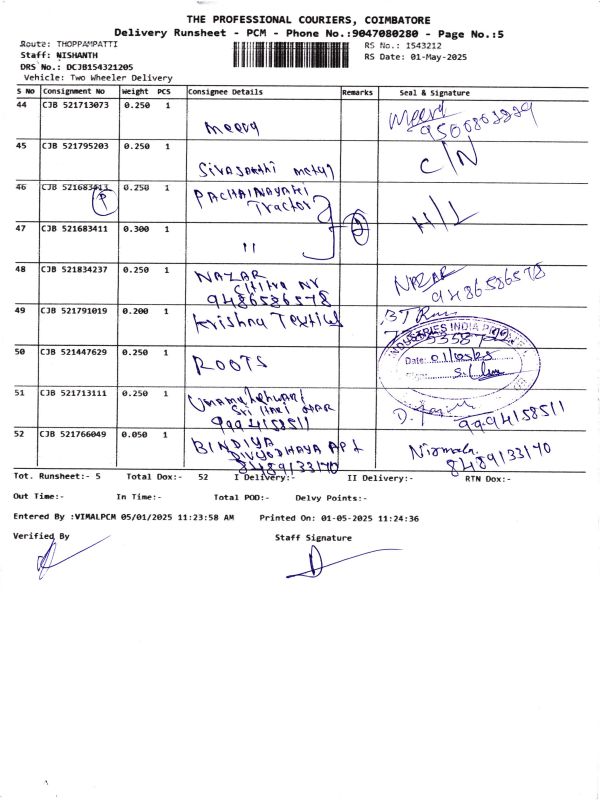 THE PROFESSIONAL COURIERS, COIMBATORE
Delivery Runsheet - PCM - Phone No.:9047080280 - Page No.:5
Route: THOPPAMPATTI
RS No.: 1543212
Staff: NISHANTH
RS Date: 01-May-2025
DRS No.: DCJB154321205
Vehicle: Two Wheeler Delivery
S No Consignment No Weight PCS Consignee Details Remarks Seal & Signature
44 CJB 521713073 0.250 1
Meera
Meera
45 CJB 521795203 0.250 1
Sivasakthi metal
C/N
46 CJB 521683413 0.250 1 PACHAINAYAKI
P
Tractor
H/L
47 CJB 521683411 0.300 1
11
48 CJB 521834237 0.250 1 NAZAR
NAZAR
9486586578
9486586578
49 CJB 521791019 0.200 1 Krishna Textiles
50 CJB 521447629 0.250 1
ROOTS
INDUSTRIES INDIA
Date: 01/05/25
51 CJB 521713111 0.250 1 Umamaheshwari
9994158511
9994158511
52 CJB 521766049 0.050 1 BINDIYA
DIVYODHAYA APt
Nirmala.
8489133170
8489133170
Tot. Runsheet:- 5 Total Dox:- 52 I Delivery:- II Delivery:- RTN Dox:-
Out Time:- In Time:- Total POD:- Delvy Points:-
Entered By :VIMALPCM 05/01/2025 11:23:58 AM Printed On: 01-05-2025 11:24:36
Verified By Staff Signature